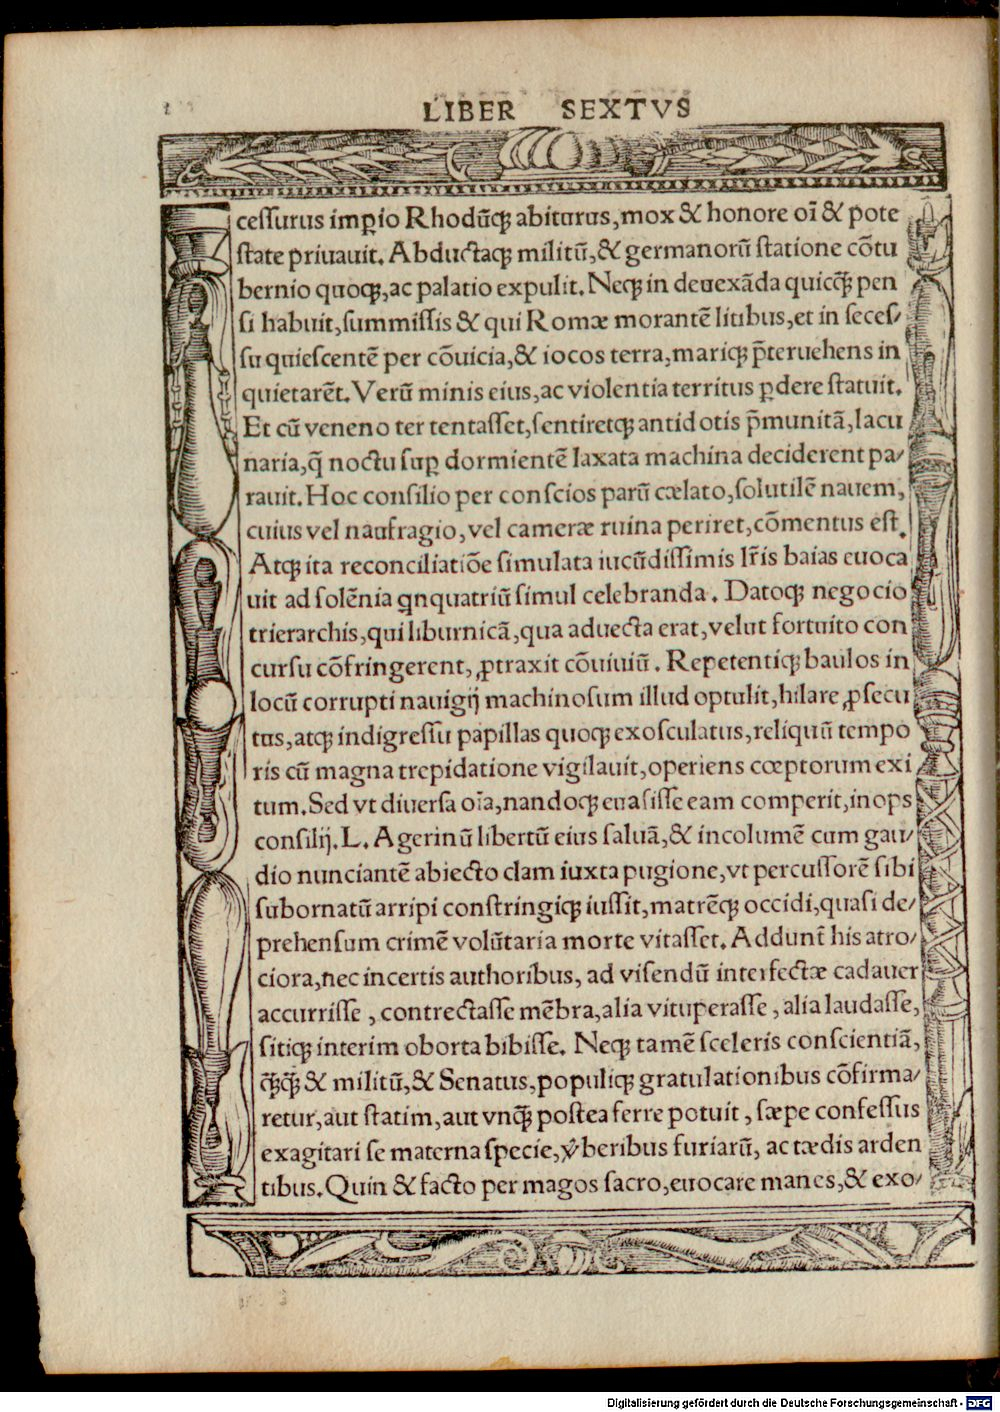 LIBER SEXTVS
ceſſurus imꝑio Rhodūqꝫ abiturus, mox & honore oī & pote
ſtate priuauit. Abductaqꝫ militū, & germanorū ſtatione cōtu
bernio quoqꝫ, ac palatio expulit. Neqꝫ in deuexāda quicq̄ꝫ pen
ſi habuit, ſummiſſis & qui Romæ morantē litibus, et in ſeceſ/
ſu quieſcentē per cōuicia, & iocos terra, mariqꝫ p̄teruehens in
quietarēt. Verū minis eius, ac violentia territus ꝑdere ſtatuit.
Et cū veneno ter tentaſſet, ſentiretqꝫ antidotis p̄munitā, lacu
naria, q̄ noctu ſuꝑ dormientē laxata machina deciderent pa/
rauit. Hoc conſilio per conſcios parū cælato, ſolutilē nauem,
cuius vel naufragio, vel cameræ ruina periret, cōmentus eſt.
Atqꝫ ita reconciliatiōe ſimulata iucūdiſſimis lr̄is baias euoca
uit ad ſolēnia qnquatriū ſimul celebranda. Datoqꝫ negocio
trierarchis, qui liburnicā, qua aduecta erat, velut fortuito con
curſu cōfringerent, ꝓtraxit cōuiuiū. Repetentiqꝫ baulos in
locū corrupti nauigij machinoſum illud optulit, hilare ꝓſecu
tus, atqꝫ indigreſſu papillas quoqꝫ exoſculatus, reliquū tempo
ris cū magna trepidatione vigilauit, operiens cœptorum exi
tum. Sed vt diuerſa oīa, nandoqꝫ euaſiſſe eam comperit, inops
conſilij. L. Agerinū libertū eius ſaluā, & incolumē cum gau/
dio nunciantē abiecto clam iuxta pugione, vt percuſſorē ſibi
ſubornatū arripi conſtringiqꝫ iuſſit, matrēqꝫ occidi, quaſi de/
prehenſum crimē volūtaria morte vitaſſet. Addunt̄ his atro/
ciora, nec incertis authoribus, ad viſendū interfectæ cadauer
accurriſſe, contrectaſſe mēbra, alia vituperaſſe, alia laudaſſe,
ſitiqꝫ interim oborta bibiſſe. Neqꝫ tamē ſceleris conſcientiā,
q̄ꝫq̄ꝫ & militū, & Senatus, populiqꝫ gratulationibus cōfirma/
retur, aut ſtatim, aut vnq̄ꝫ poſtea ferre potuit, ſæpe confeſſus
exagitari ſe materna ſpecie, v̓beribus furiarū, ac tædis arden
tibus. Quin & facto per magos ſacro, euocare manes, & exo/
Digitalisierung gefördert durch die Deutsche Forschungsgemeinschaft - DFG